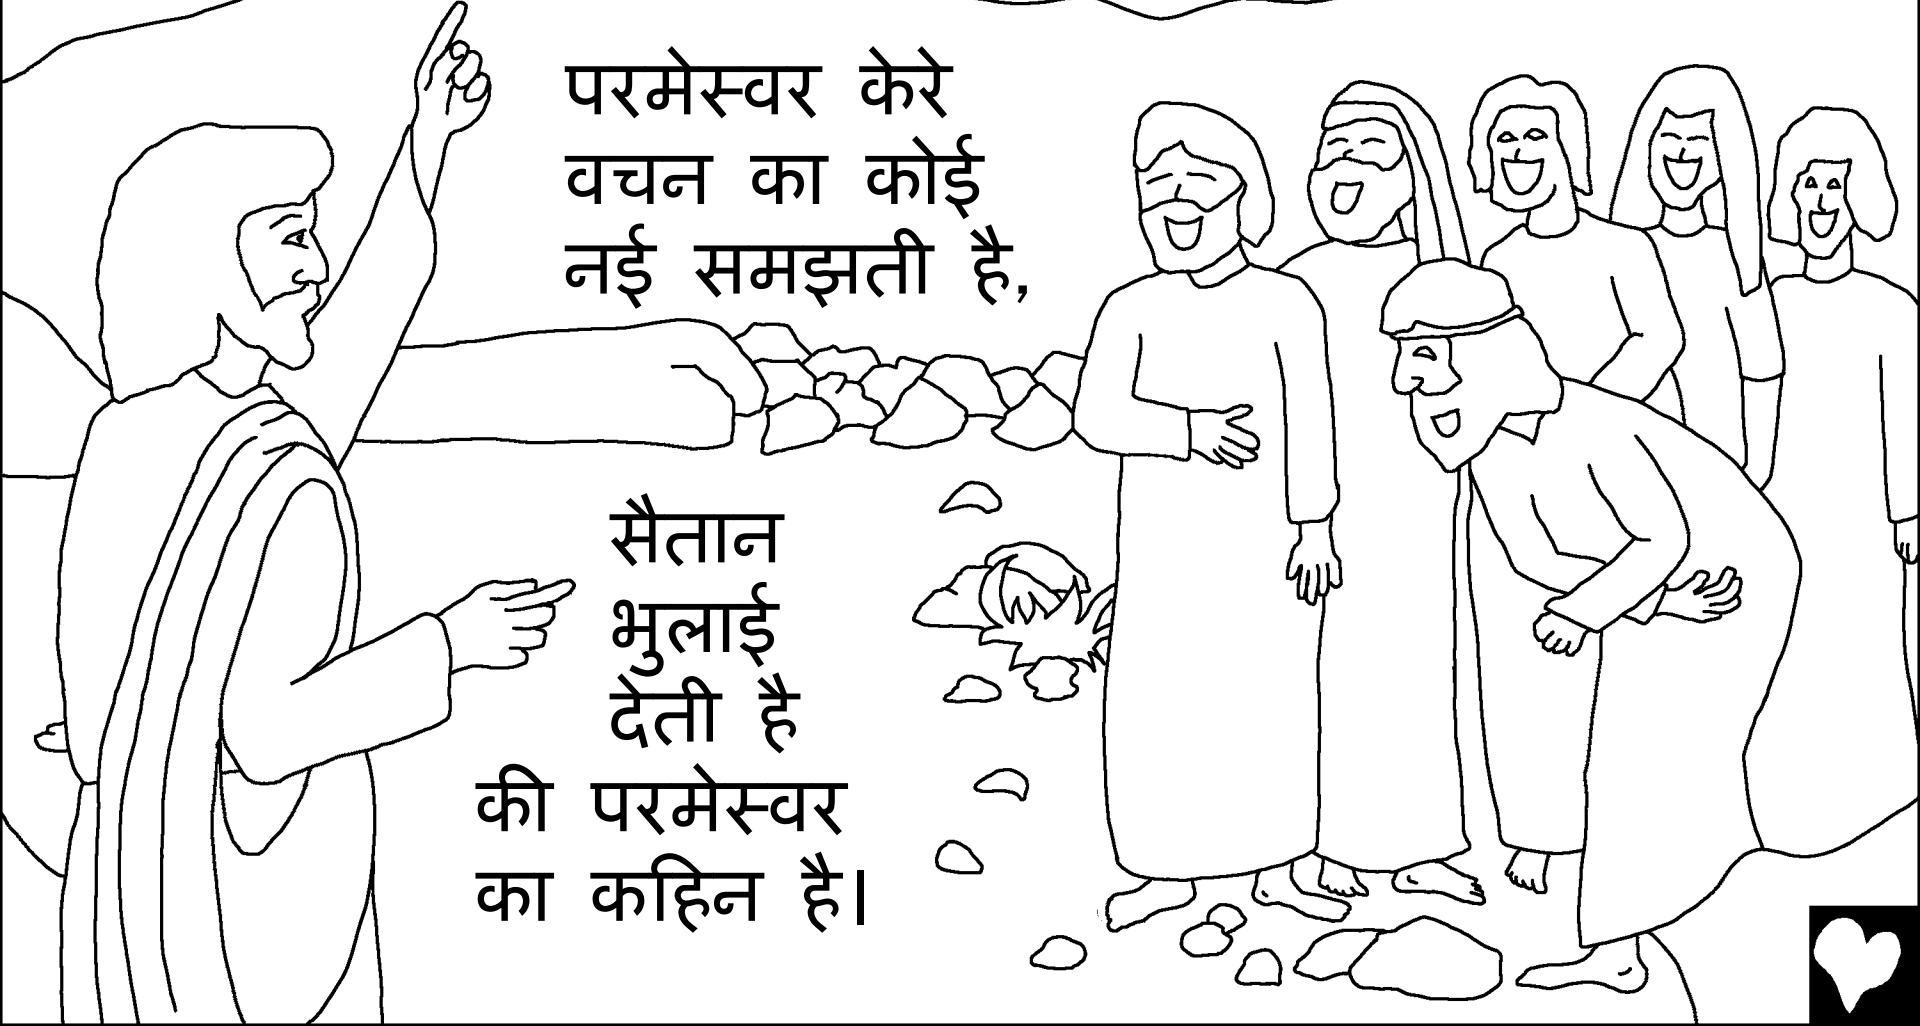 परमेस्वर केरे
वचन का कोई
नई समझती है,
सैतान
भुलाई
देती है
की परमेस्वर
का कहिन है।